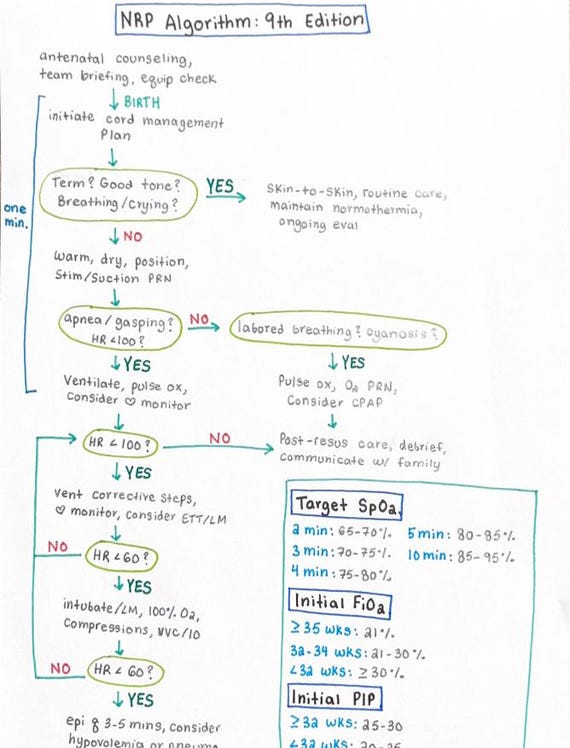 NRP Algorithm: 9th Edition
antenatal counseling,
team briefing, equip check
BIRTH
initiate cord management
Plan
one
min.
Term? Good tone?
Breathing/Crying?
YES
Skin-to-skin, routine care,
maintain normothermia,
ongoing eval
NO
warm, dry, position,
Stim/Suction PRN
apnea/gasping?
HR <100?
NO
labored breathing? cyanosis?
YES
Ventilate, pulse ox,
Consider ♡ monitor
YES
Pulse ox, O₂ PRN,
Consider CPAP
HR <100?
NO
Post-resus care, debrief,
communicate w/ family
YES
Vent corrective steps,
♡ monitor, consider ETT/LM
NO
HR <60?
YES
intubate/LM, 100% O₂,
Compressions, UVC/IO
NO
HR <60?
YES
epi q 3-5 mins, consider
hypovolemia or
Target SpO₂
2 min: 65-70%
5 min: 80-85%
3 min: 70-75%
10 min: 85-95%
4 min: 75-80%
Initial FiO₂
≥35 wks: 21%
32-34 wks: 21-30%
<32 wks: ≥30%
Initial PIP
≥32 wks: 25-30
<32 wks: